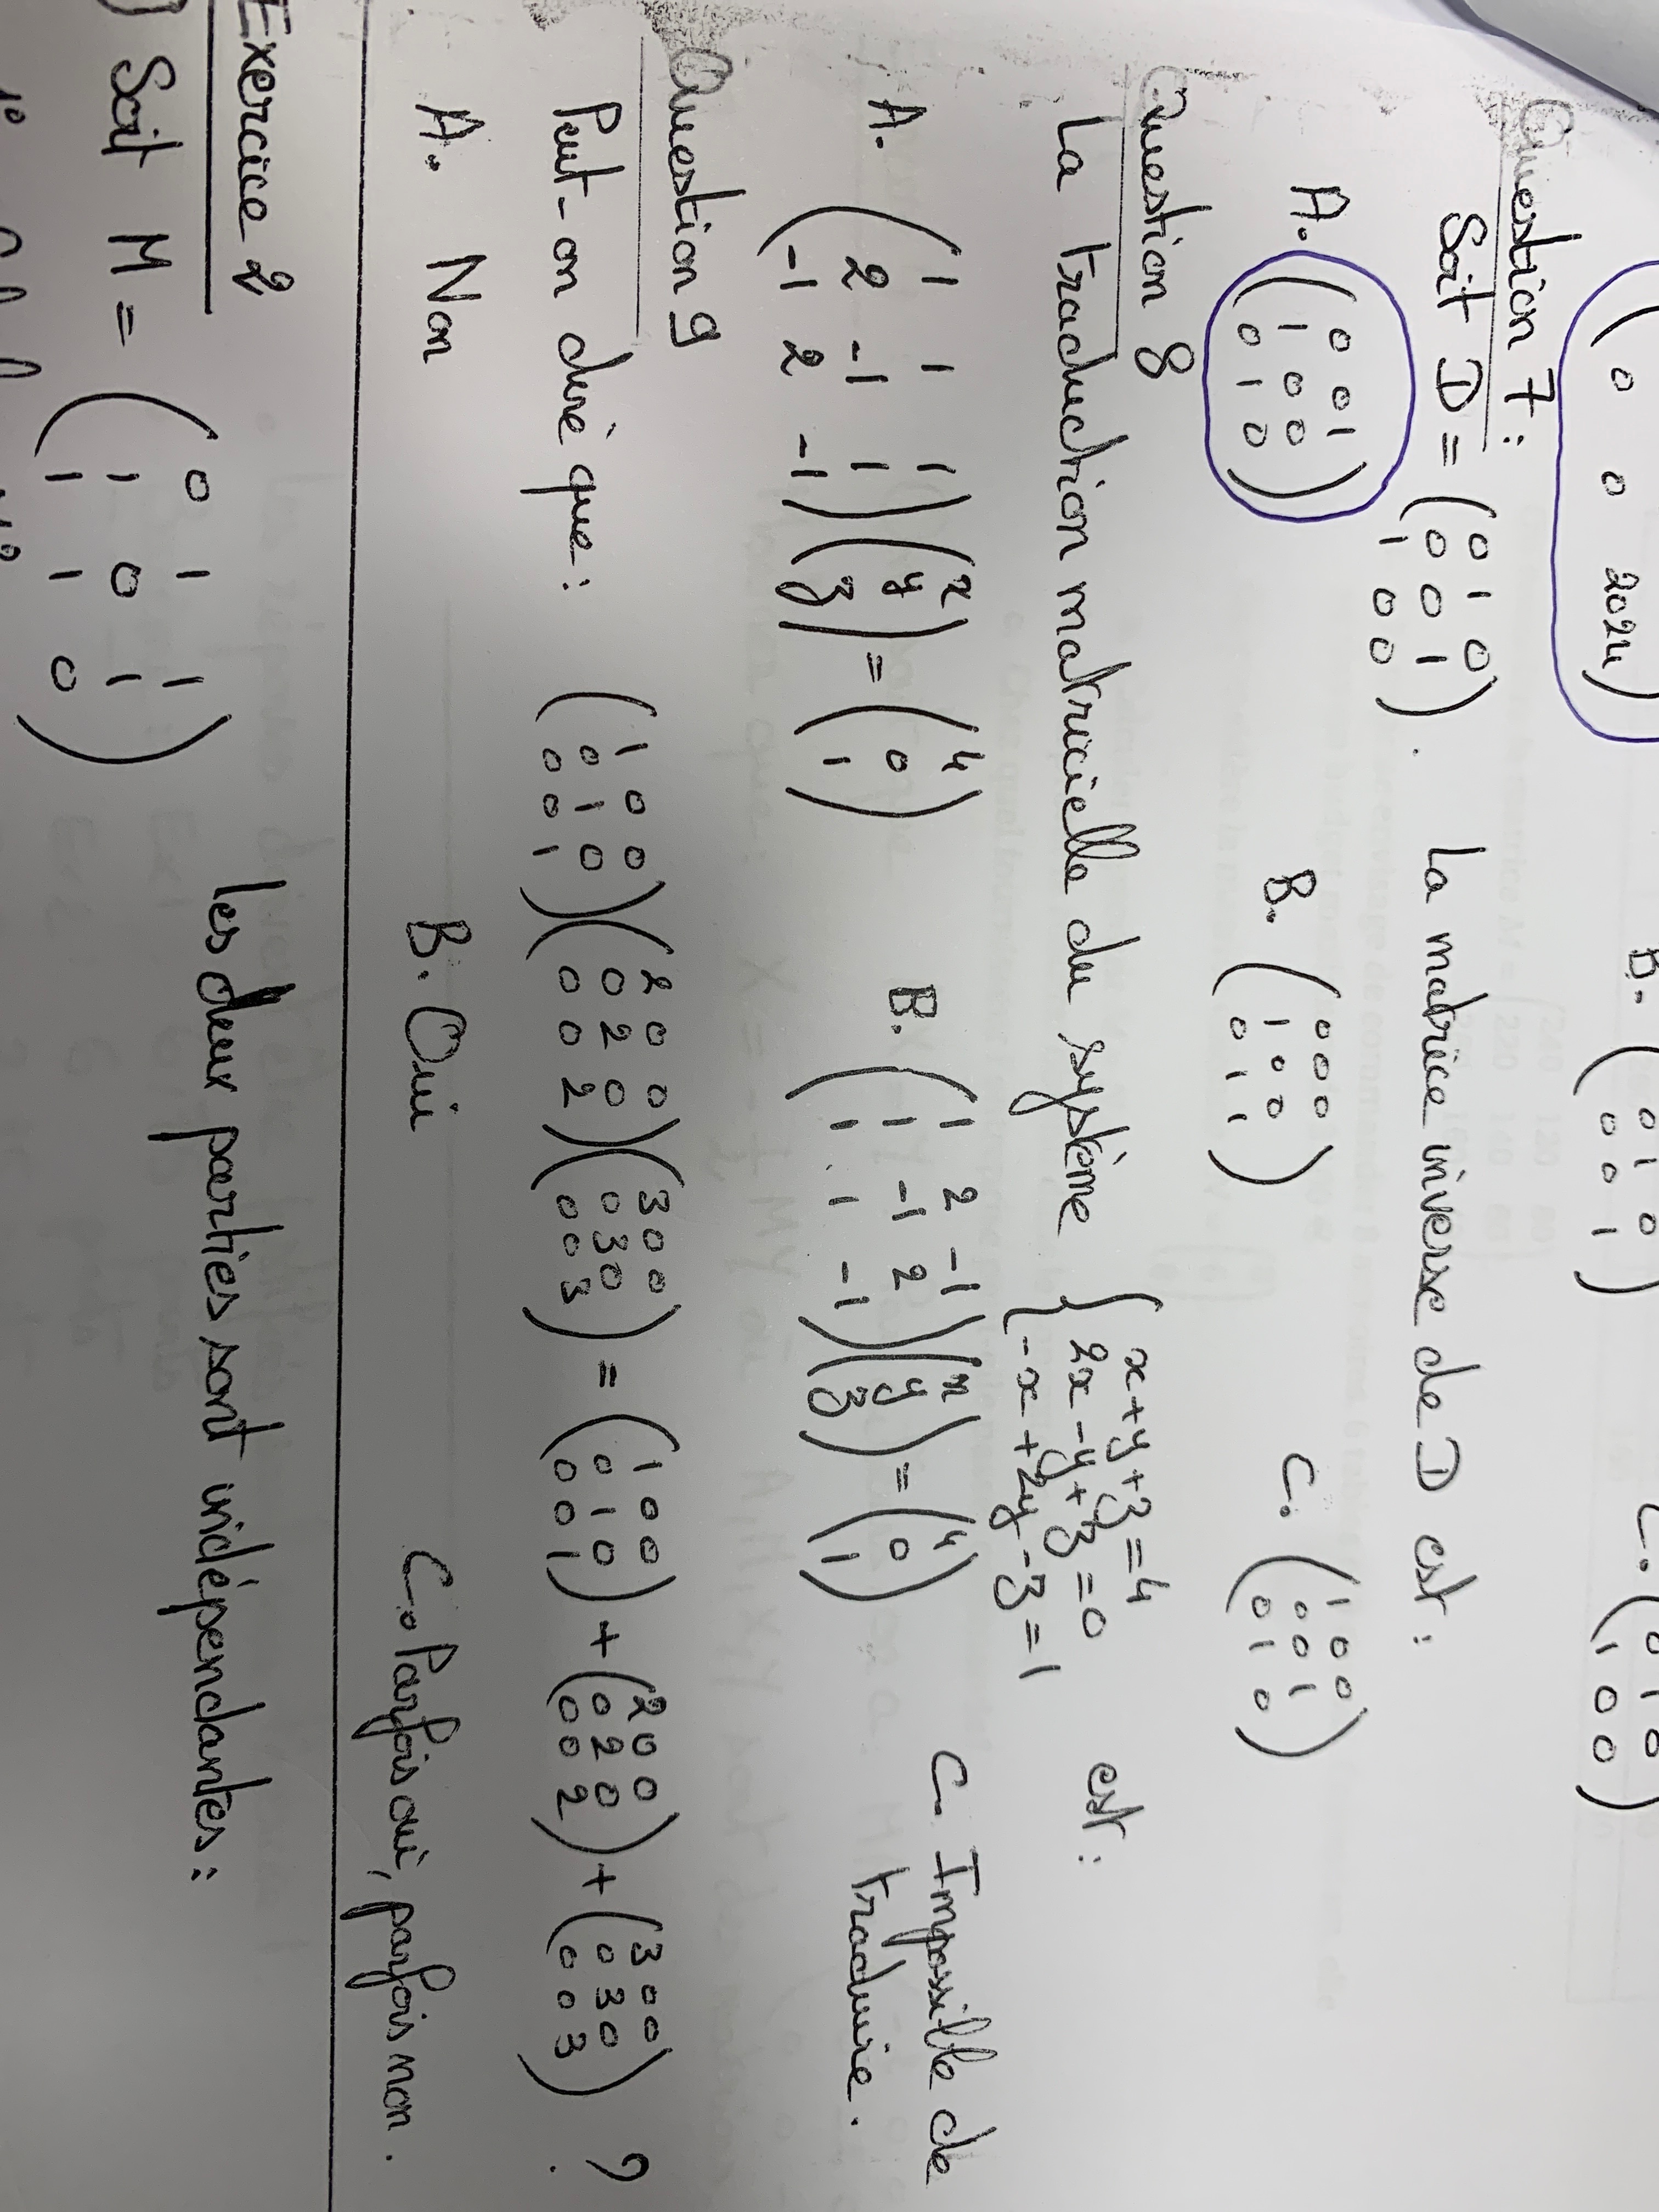 ( 0 0 2024)
B. ( 0 1 0
0 0 1 )
C. ( 0 1 0
1 0 0 )
Question 7:
Soit D = ( 0 1 0
0 0 1
1 0 0 ). La matrice inverse de D est :
A. ( 0 0 1
1 0 0
0 1 0 )
B. ( 0 0 0
1 0 0
0 1 1 )
C. ( 1 0 0
0 0 1
0 1 0 )
Question 8
La traduction matricielle du système { x+y+z=4
2x-y+z=0
-x+2y-z=1 est :
A. ( 1 1 1
2 -1 1
-1 2 -1 ) ( x
y
z ) = ( 4
0
1 )
B. ( 1 2 -1
1 -1 2
1 1 -1 ) ( x
y
z ) = ( 4
0
1 )
C. Impossible de
traduire.
Question 9
Peut-on dire que : ( 1 0 0
0 1 0
0 0 1 ) ( 2 0 0
0 2 0
0 0 2 ) ( 3 0 0
0 3 0
0 0 3 ) = ( 1 0 0
0 1 0
0 0 1 ) + ( 2 0 0
0 2 0
0 0 2 ) + ( 3 0 0
0 3 0
0 0 3 ) ?
A. Non B. Oui C. Parfois oui, parfois non.
Exercice 2 les deux parties sont indépendantes :
) Soit M = ( 0 1 1
1 0 1
1 1 0 )
1°